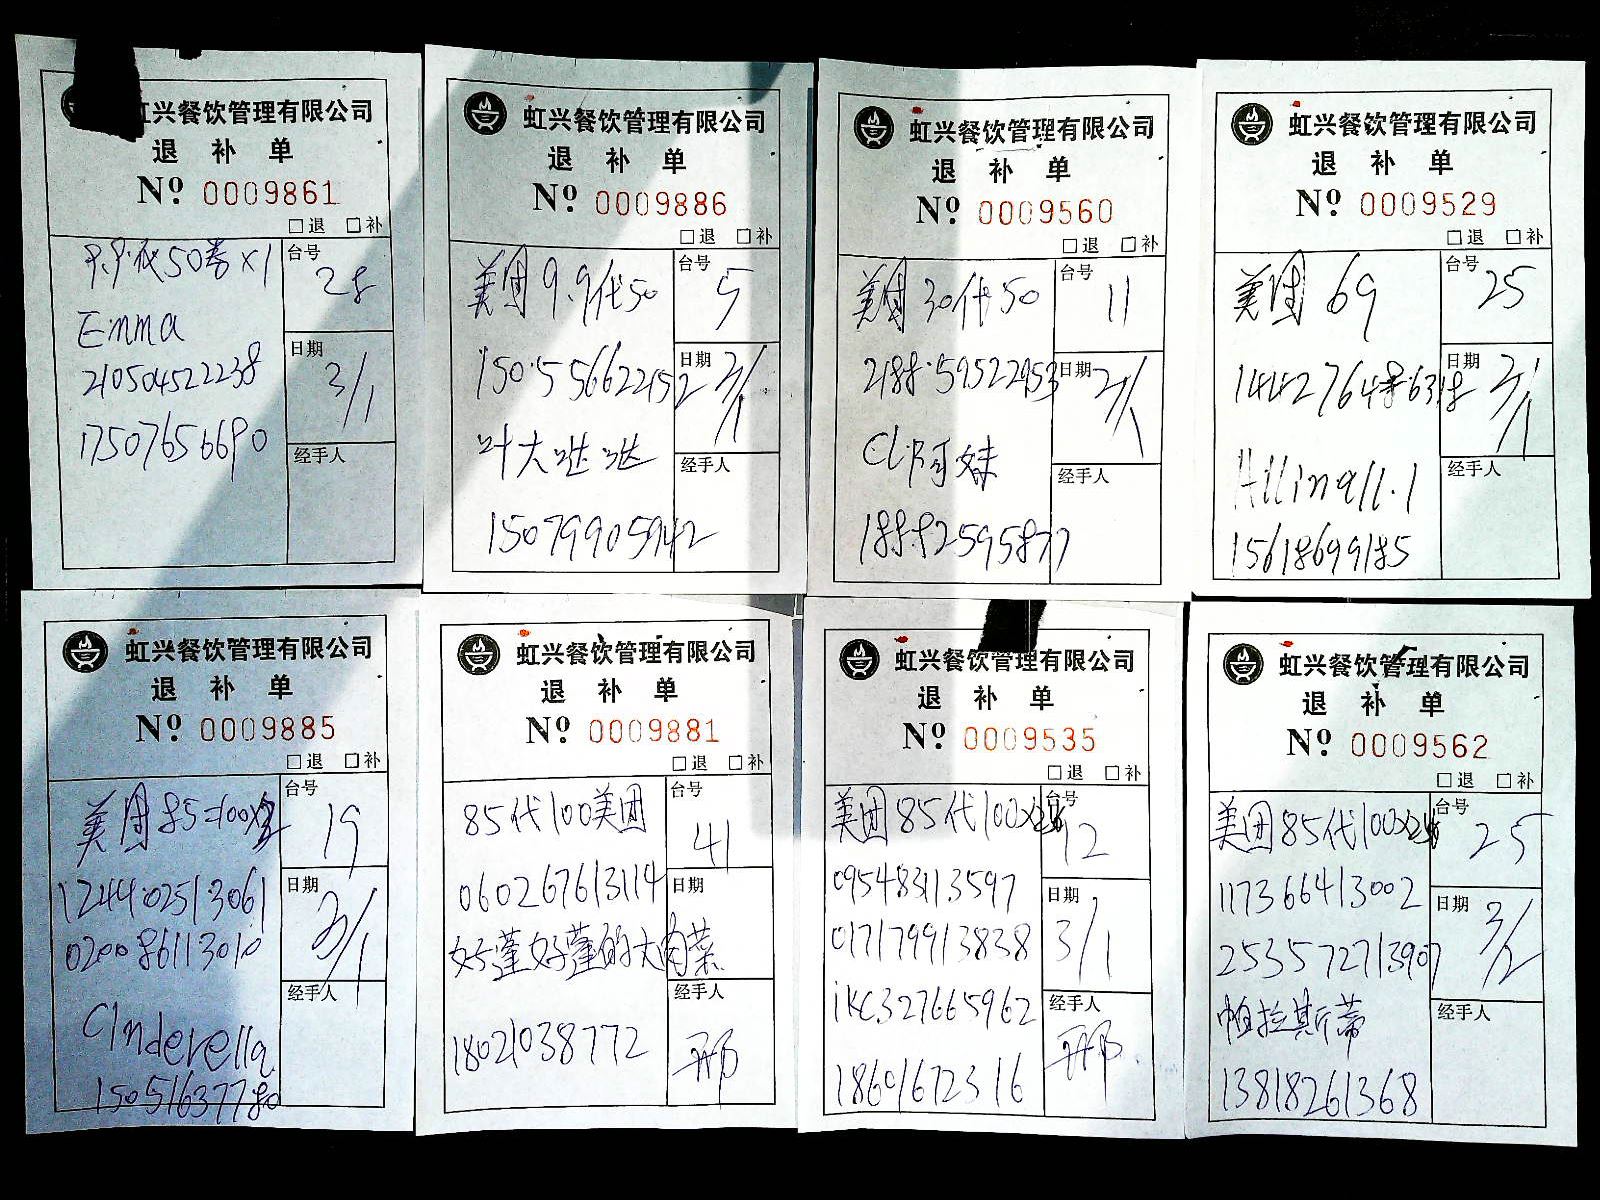 虹兴餐饮管理有限公司
退 补 单
Nº 0009861
□退 □补
9.9代50券×1
台号
28
Emma
210504522238
日期
3/1
17507656690
经手人
虹兴餐饮管理有限公司
退 补 单
Nº 0009886
□退 □补
美团9.9代50
台号
5
150755662252
日期
3/1
叶大哒哒
经手人
15079905942
虹兴餐饮管理有限公司
退 补 单
Nº 0009560
□退 □补
美团30代50
台号
11
日期
经手人
虹兴餐饮管理有限公司
退 补 单
Nº 0009529
□退 □补
美团 69
台号
25
日期
经手人
15618699185
虹兴餐饮管理有限公司
退 补 单
Nº 0009885
□退 □补
美团85=100×2
台号
19
124402513061
日期
3/1
020086113010
经手人
Cinderella
15051637780
虹兴餐饮管理有限公司
退 补 单
Nº 0009881
□退 □补
85代100美团
台号
41
060267613114
日期
好蓬好蓬的大肉菜
经手人
18021038772
邢
虹兴餐饮管理有限公司
退 补 单
Nº 0009535
□退 □补
美团85代100×2
台号
12
095483113597
日期
017179913838
3/1
iKC327665962
经手人
18601672316
邢
虹兴餐饮管理有限公司
退 补 单
Nº 0009562
□退 □补
美团85代100×2
台号
25
117366413002
日期
3/2
253572713907
帕拉斯蒂
经手人
13818261368